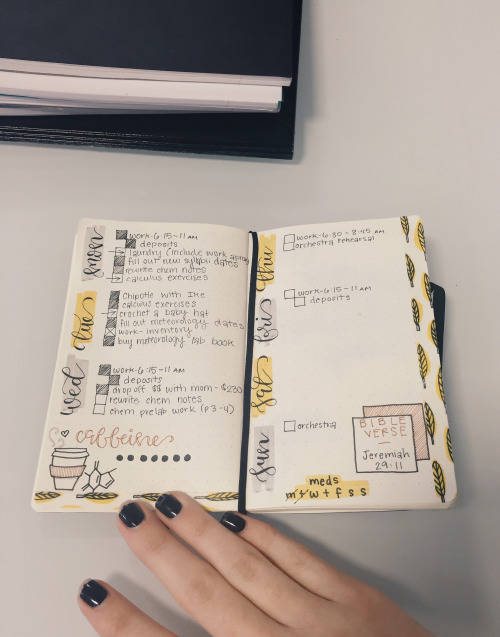 mon
work - 6:15 - 11 AM
deposits
laundry (include work aprons)
fill out new syllabi dates
rewrite chem notes
calculus exercises
tue
Chipotle with Ike
calculus exercises
crochet a baby hat
fill out meteorology dates
work - inventory
buy meteorology lab book
wed
work - 6:15 - 11 AM
deposits
drop off $$ with mom - $230
rewrite chem notes
chem prelab work (p3-4)
caffeine
thu
work - 6:30 - 8:45 AM
orchestra rehearsal
fri
work - 6:15 - 11 AM
deposits
sat
sun
orchestra
BIBLE
VERSE
Jeremiah
29:11
meds
m t w t f s s